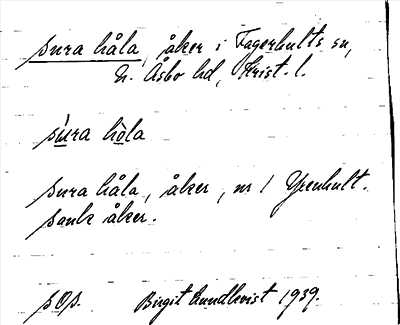 sura håla, åker i Fagerhults sn,
N. Åsbo hd, Krist. l.
sura håla
sura håla, åker, nr 1 Yxenhult.
sank åker.
Birgit Lundkvist 1939.